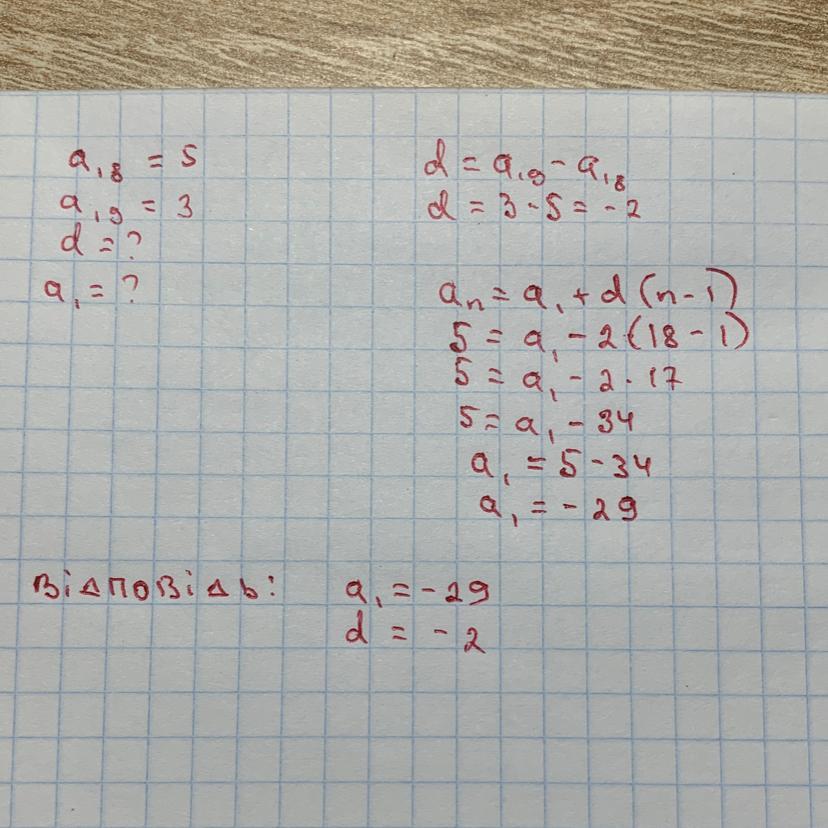 a₁₈ = 5
a₁₉ = 3
d = ?
a₁ = ?
d = a₁₉ - a₁₈
d = 3 - 5 = -2
aₙ = a₁ + d(n-1)
5 = a₁ - 2(18-1)
5 = a₁ - 2·17
5 = a₁ - 34
a₁ = 5 - 34
a₁ = -29
Відповідь: a₁ = -29
d = -2